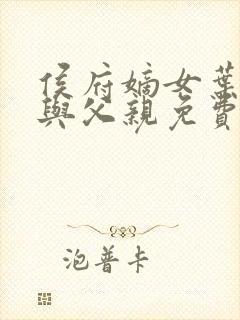 侯府嫡女葉
與父親免費
泡普卡